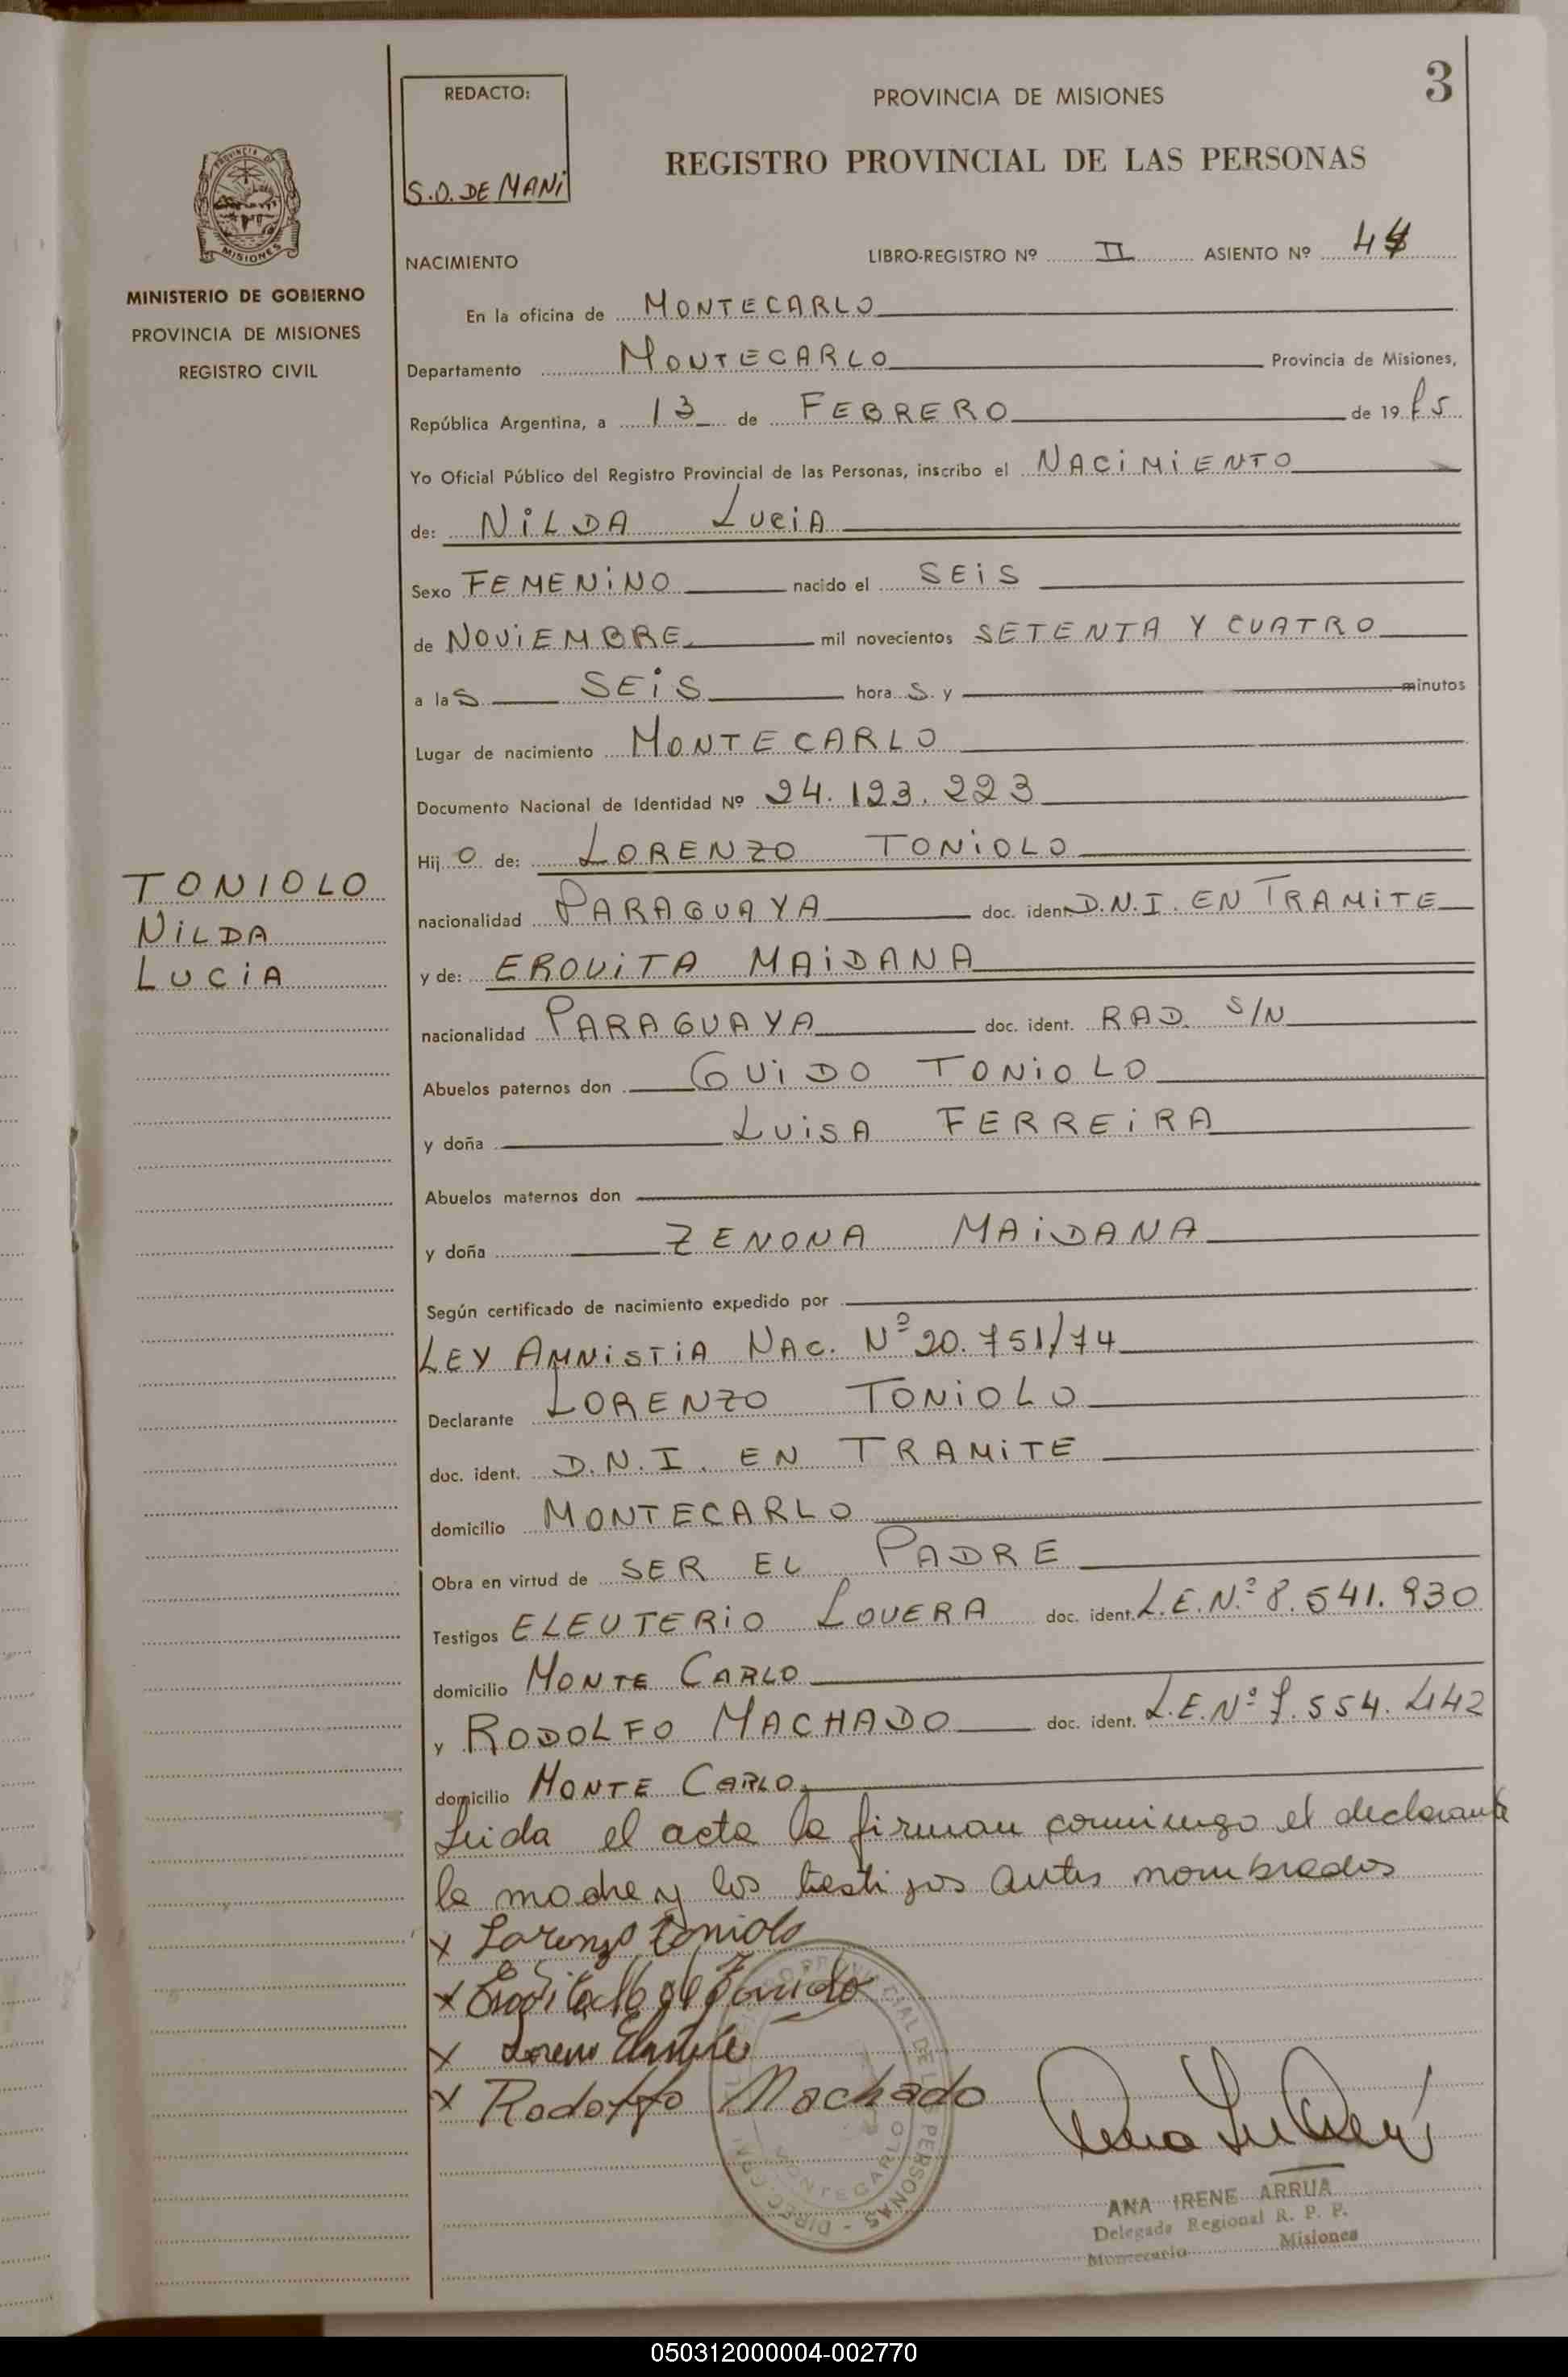 3
REDACTO:
S.O. DE MANI
PROVINCIA DE MISIONES
REGISTRO PROVINCIAL DE LAS PERSONAS
PROVINCIA DE
MISIONES
MINISTERIO DE GOBIERNO
PROVINCIA DE MISIONES
REGISTRO CIVIL
NACIMIENTO
LIBRO-REGISTRO Nº II ASIENTO Nº
En la oficina de MONTECARLO
Departamento MONTECARLO Provincia de Misiones,
República Argentina, a 13 de FEBRERO de 1975
Yo Oficial Público del Registro Provincial de las Personas, inscribo el NACIMIENTO
de: NILDA LUCIA
Sexo FEMENINO nacido el SEIS
de NOVIEMBRE mil novecientos SETENTA Y CUATRO
a las SEIS horas y minutos
Lugar de nacimiento MONTECARLO
Documento Nacional de Identidad Nº 24.123.223
Hijo de: LORENZO TONIOLO
TONIOLO
NILDA
LUCIA
nacionalidad PARAGUAYA doc. ident. D.N.I. EN TRAMITE
y de: EROVITA MAIDANA
nacionalidad PARAGUAYA doc. ident. RAD. S/N
Abuelos paternos don GUIDO TONIOLO
y doña LUISA FERREIRA
Abuelos maternos don
y doña ZENONA MAIDANA
Según certificado de nacimiento expedido por
LEY AMNISTIA NAC. Nº 20.751/74
Declarante LORENZO TONIOLO
doc. ident. D.N.I. EN TRAMITE
domicilio MONTECARLO
Obra en virtud de SER EL PADRE
Testigos ELEUTERIO LOVERA doc. ident. L.E.N.º 8.541.930
domicilio MONTE CARLO
y RODOLFO MACHADO doc. ident. L.E.Nº 7.554.442
domicilio MONTE CARLO
Leida el acta la firman conmigo el declarante
la madre y los testigos antes nombrados
x Lorenzo Toniolo
x
x
x Rodolfo Machado
MONTECARLO
ANA IRENE ARRUA
Delegada Regional R. P. P.
Montecarlo Misiones
050312000004-002770